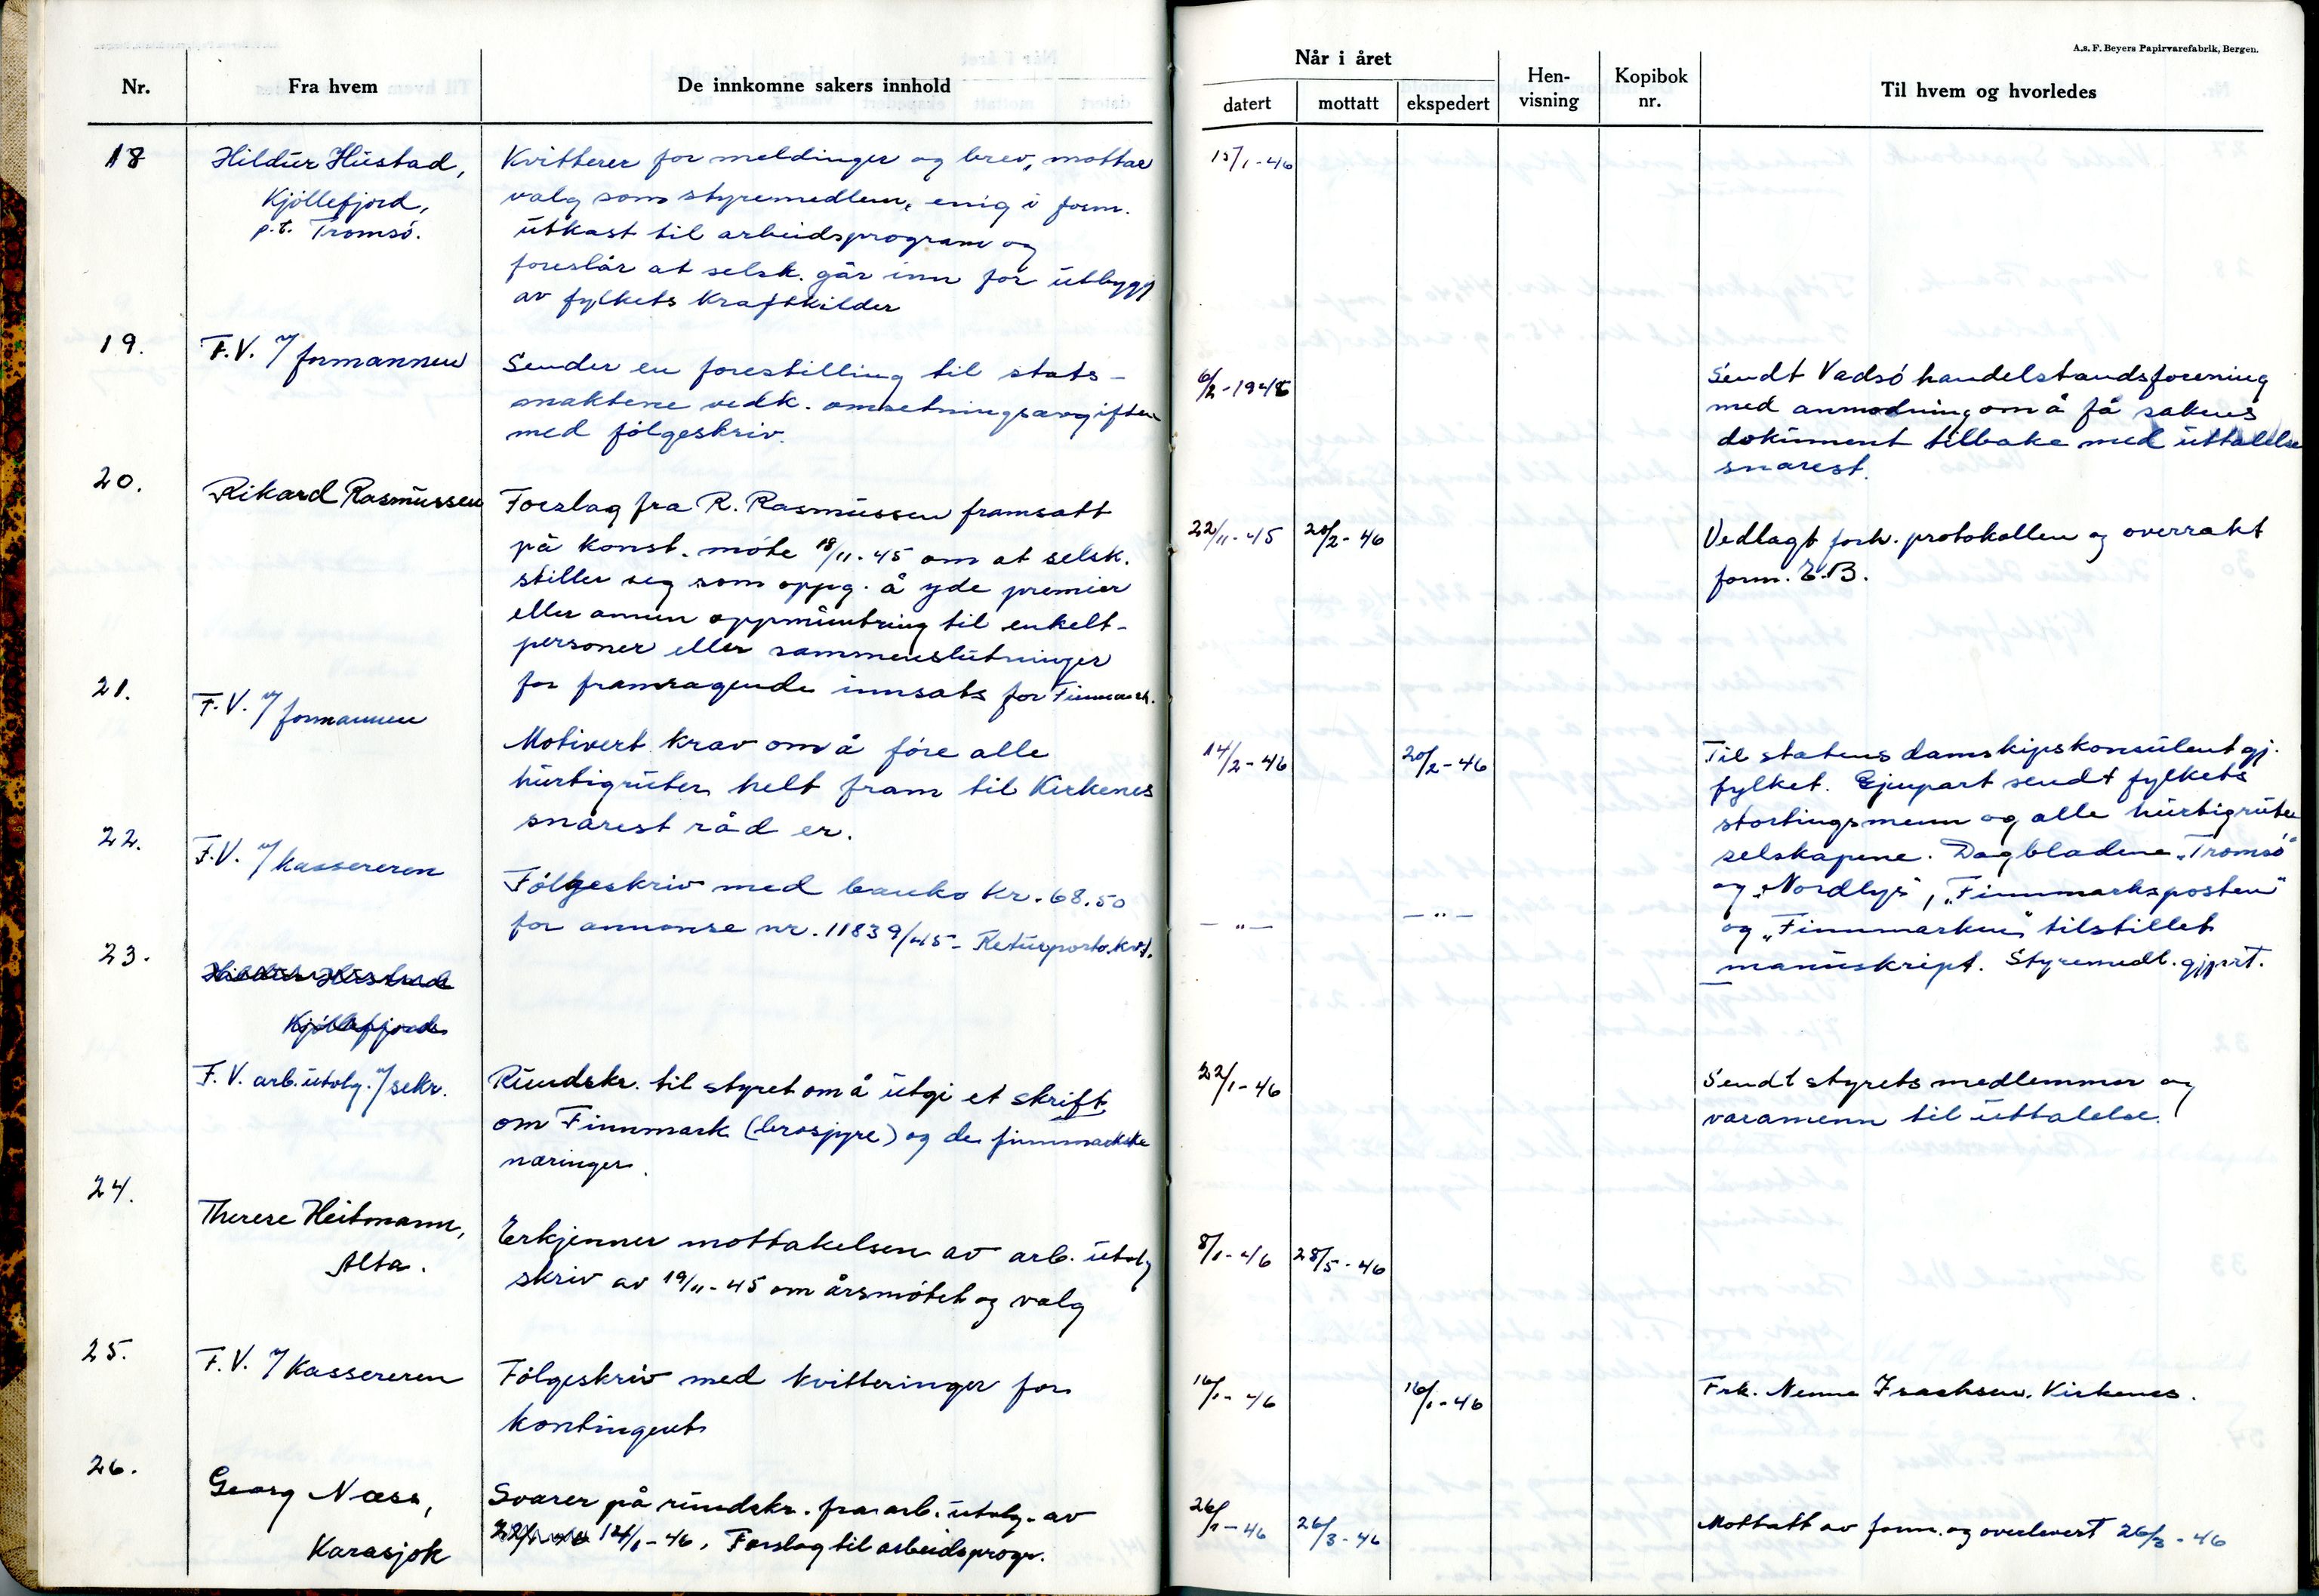 Nr.
Fra hvem
De innkomne sakers innhold
18
Hildur Hustad,
Kjöllefjord,
p.t. Tromsö.
Kvitterer for meldinger og brev, mottar
valg som styremedlem, enig i form.
utkast til arbeidsprogram og
foreslår at selsk. går inn for utbygg
av fylkets kraftkilder
19.
F.V. v/ formannen
Sender en forestilling til stats-
maktene vedk. omsetningsavgiften
med fölgeskriv.
20.
Rikard Rasmussen
Forslag fra R. Rasmussen framsatt
på konst. möte 18/11-45 om at selsk.
stiller seg som oppg. å yde premier
eller annen oppmuntring til enkelt-
personer eller sammenslutninger
for framragende innsats for Finnmark.
21.
F.V. v/ formannen
Motivert krav om å före alle
hurtigruter helt fram til Kirkenes
snarest råd er.
22.
F.V. v/ kassereren
Fölgeskriv med banko kr. 68.50
for annonse nr. 11839/45 - Returporto. kvt.
23.
Hildur Hustad
Kjöllefjord
F.V. arb.utvlg. v/ sekr.
Rundskr. til styret om å utgi et skrift
om Finnmark (brosjyre) og de finnmarkske
næringer.
24.
Therese Heitmann,
Alta.
Erkjenner mottakelsen av arb. utvlg
skriv av 19/11-45 om årsmötet og valg
25.
F.V. v/ kassereren
Fölgeskriv med kvitteringer for
kontingent
26.
Georg Næss,
Karasjok
Svarer på rundskr. fra arb. utvlg. av
12/1-46, Forslag til arbeidsprogr.
A.s. F. Beyers Papirvarefabrik, Bergen.
Når i året
datert
mottatt
ekspedert
Hen-
visning
Kopibok
nr.
Til hvem og hvorledes
15/1-46
6/2-1946
Sendt Vadsö handelstandsforening
med anmodning om å få sakens
dokument tilbake med uttalelse
snarest.
22/11-45
20/2-46
Vedlagt forh. protokollen og overrakt
form. E.B.
14/2-46
20/2-46
Til statens damskipskonsulent gj.
fylket. Gjenpart sendt fylkets
stortingsmenn og alle hurtigrute
selskapene. Dagbladene „Tromsö"
og „Nordlys", „Finnmarksposten"
og „Finnmarken" tilstillet
manuskript. Styremedl. gjprt.
- " -
- " -
22/1-46
Sendt styrets medlemmer og
varamenn til uttalelse.
8/1-46
28/5-46
16/1-46
16/1-46
Frk. Nenna Isachsen. Kirkenes.
26/1-46
26/3-46
Mottatt av form. og overlevert 26/3-46